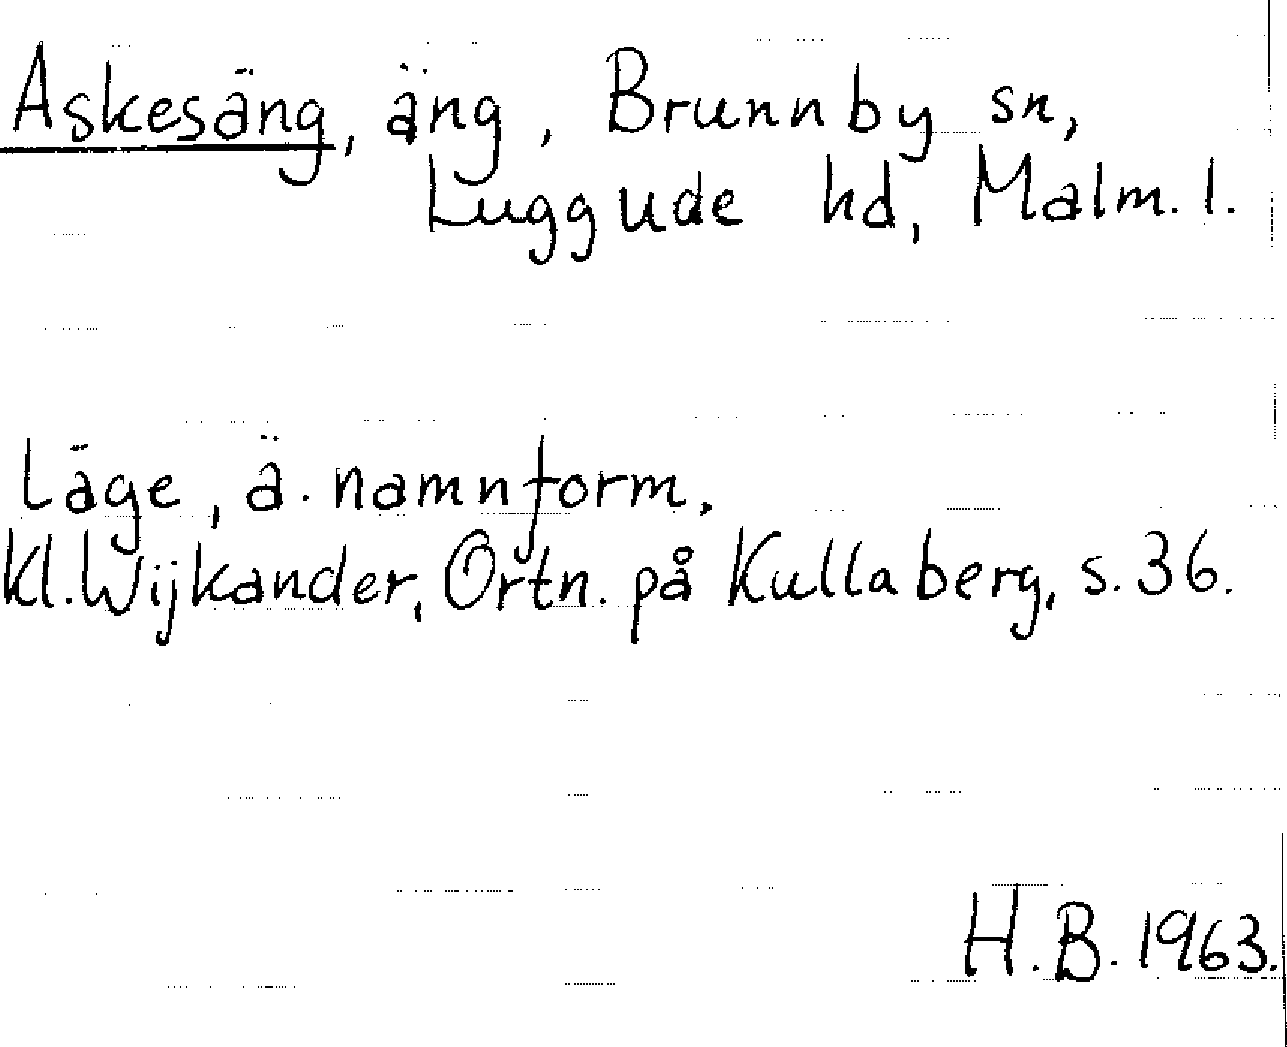 Askesäng, äng, Brunnby sn,
Luggude hd, Malm. l.
Läge, ä. namnform.
Kl. Wijkander, Ortn. på Kullaberg, s. 36.
H.B. 1963.